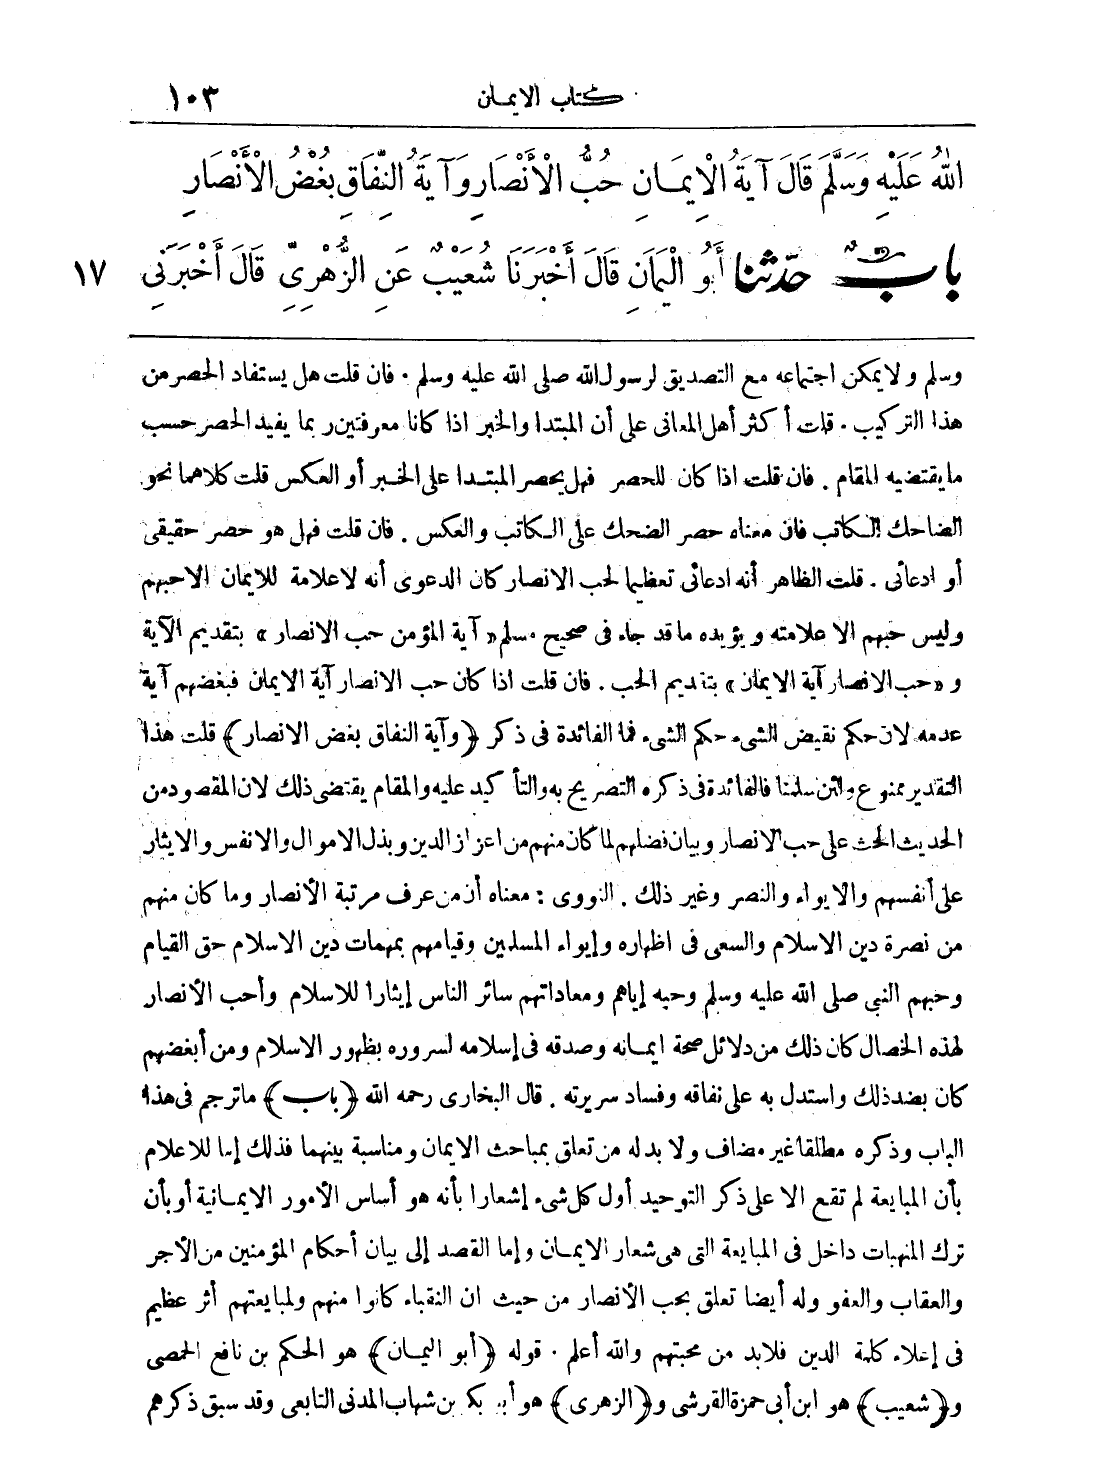 كتاب الايمان ١٠٣
اللهُ عَلَيْهِ وَسَلَّمَ قَالَ آيَةُ الْإِيمَانِ حُبُّ الْأَنْصَارِ وَآيَةُ النِّفَاقِ بُغْضُ الْأَنْصَارِ
بابٌ حدّثنا أَبُو الْيَمَانِ قَالَ أَخْبَرَنَا شُعَيْبٌ عَنِ الزُّهْرِيِّ قَالَ أَخْبَرَنِي ١٧
وسلم ولا يمكن اجتماعه مع التصديق لرسول الله صلى الله عليه وسلم . فان قلت هل يستفاد الحصر من
هذا التركيب . قلت أكثر أهل المعانى على أن المبتدا والخبر اذا كانا معرفتين ربما يفيد الحصر حسب
ما يقتضيه المقام . فان قلت اذا كان للحصر فهل يحصر المبتدا على الخبر أو العكس قلت كلاهما نحو
الضاحك الكاتب فان معناه حصر الضحك على الكاتب والعكس . فان قلت فهل هو حصر حقيقى
أو ادعائى . قلت الظاهر أنه ادعائى تعظيما لحب الانصار كان الدعوى أنه لا علامة للايمان الا حبهم
وليس حبهم الا علامته ويؤيده ما قد جاء فى صحيح مسلم «آية المؤمن حب الانصار» بتقديم الآية
و «حب الانصار آية الايمان» بتقديم الحب . فان قلت اذا كان حب الانصار آية الايمان فبغضهم آية
عدمه لان حكم نقيض الشىء حكم الشىء فما الفائدة فى ذكر ﴿وآية النفاق بغض الانصار﴾ قلت هذا
التقدير ممنوع ولئن سلمنا فالفائدة فى ذكره التصريح به والتأكيد عليه والمقام يقتضى ذلك لان المقصود من
الحديث الحث على حب الانصار وبيان فضلهم لما كان منهم من اعزاز الدين وبذل الاموال والانفس والايثار
على أنفسهم والايواء والنصر وغير ذلك . النووى : معناه أن من عرف مرتبة الأنصار وما كان منهم
من نصرة دين الاسلام والسعى فى اظهاره وإيواء المسلمين وقيامهم بمهمات دين الاسلام حق القيام
وحبهم النبى صلى الله عليه وسلم وحبه إياهم ومعاداتهم سائر الناس إيثارا للاسلام وأحب الأنصار
لهذه الخصال كان ذلك من دلائل صحة ايمانه وصدقه فى إسلامه لسروره بظهور الاسلام ومن أبغضهم
كان بضد ذلك واستدل به على نفاقه وفساد سريرته . قال البخارى رحمه الله ﴿باب﴾ ما ترجم فى هذا
الباب وذكره مطلقا غير مضاف ولا بد له من تعلق بمباحث الايمان ومناسبة بينهما فذلك إما للاعلام
بأن المبايعة لم تقع الا على ذكر التوحيد أول كل شىء إشعارا بأنه هو أساس الأمور الايمانية أو بأن
ترك المنهيات داخل فى المبايعة التى هى شعار الايمان وإما القصد إلى بيان أحكام المؤمنين من الأجر
والعقاب والعفو وله أيضا تعلق بحب الأنصار من حيث ان النقباء كانوا منهم ولمبايعتهم أثر عظيم
فى إعلاء كلمة الدين فلابد من محبتهم والله أعلم . قوله ﴿أبو اليمان﴾ هو الحكم بن نافع الحمصى
و﴿شعيب﴾ هو ابن أبى حمزة القرشى و﴿الزهرى﴾ هو أبو بكر بن شهاب المدنى التابعى وقد سبق ذكرهم